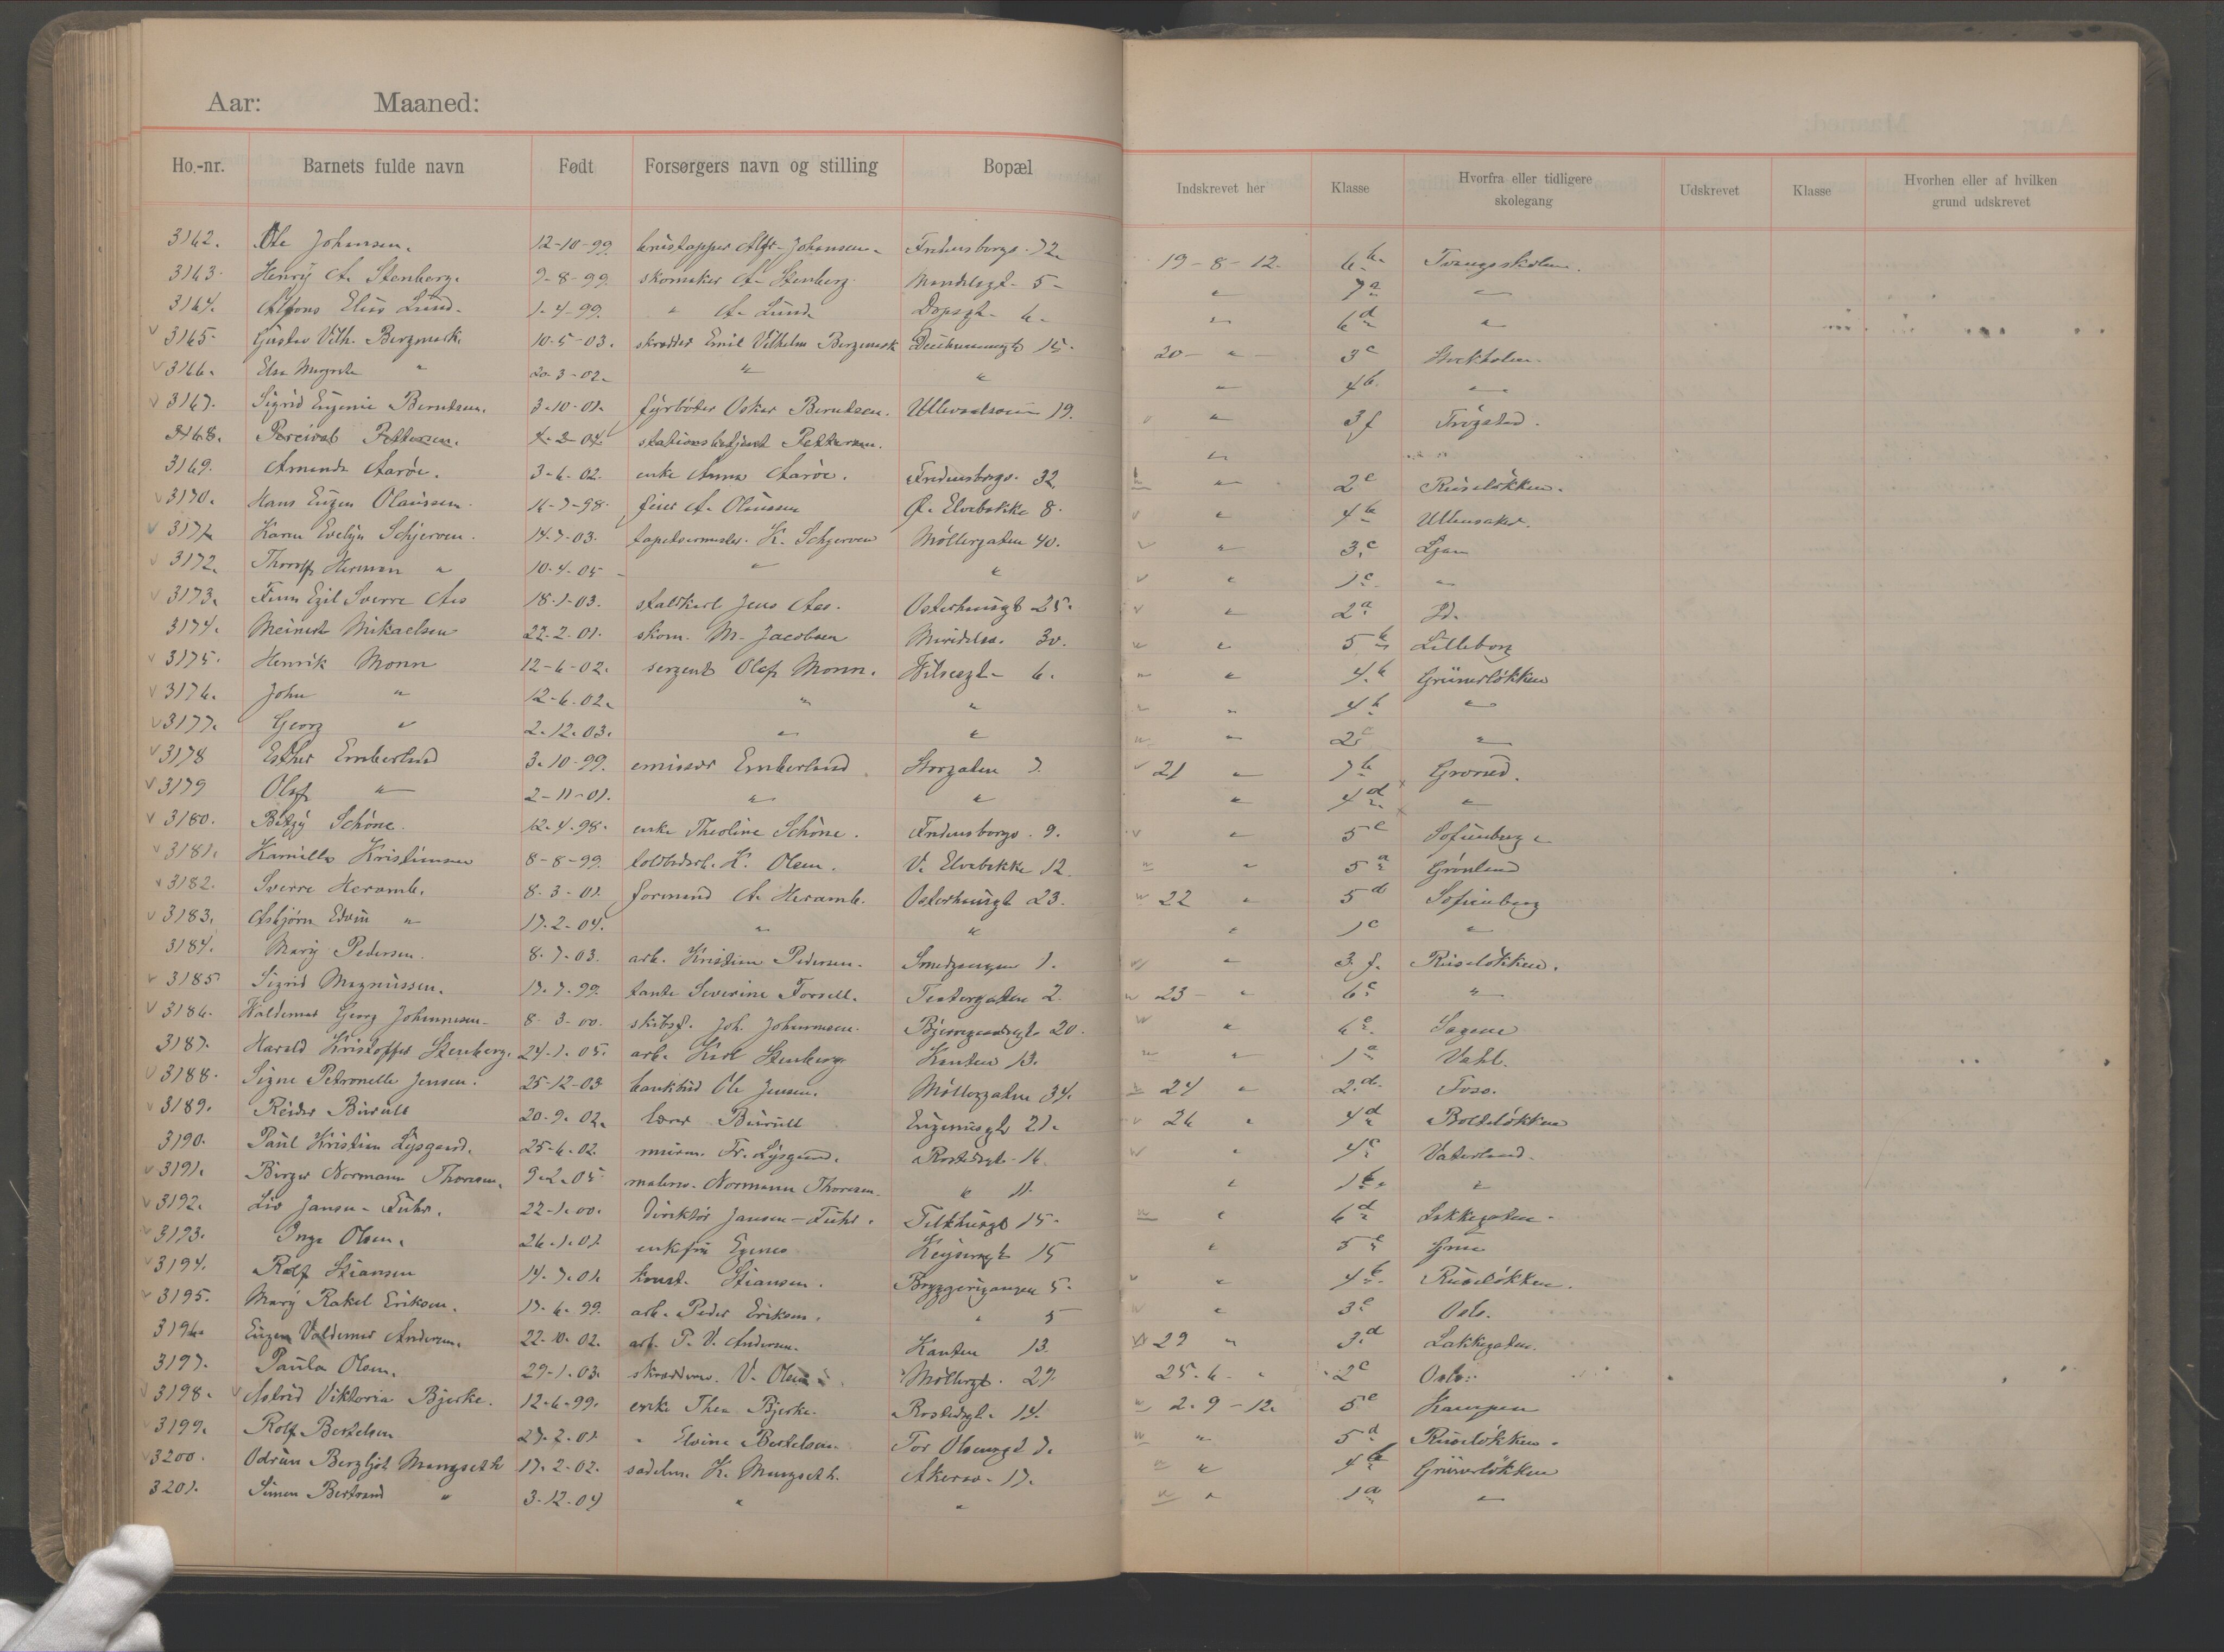 Aar: Maaned:
Ho.-nr. Barnets fulde navn Født Forsørgers navn og stilling Bopæl Indskrevet her Klasse Hvorfra eller tidligere skolegang Udskrevet Klasse Hvorhen eller af hvilken grund udskrevet
3162. Ole Johansen. 12-10-99. Alfr. Johansen. Fredensborgv. 72. 19-8-12. 6 b. Tvangsskolen.
3163. Henry A. Stenberg. 9-8-99. skomaker A. Stenberg 5 " 7 a "
3164. Alfons Elius Lund. 1-4-99. " A. Lund. 6. " 6 d "
v 3165. Gustav Vilh. Bergmark. 10-5-03. skrædder Emil Vilhelm Bergmark Deichmannsgt 15. 20- " 3 c Stockholm.
v 3166. Elsa " 20-3-02. " " " 4 b. "
v 3167. Sigrid Eugenie Berndsen. 3-10-01. fyrbøter Oskar Berndsen. Ullevaalsvei 19. v " 3 f Trøgstad.
3168. Percival Pettersen. 4-2-04. stationsbetjent Pettersen. "
3169. Amanda Aarøe. 3-6-02. enke Anna Aarøe. Fredensborgv. 32 " 2 c Ruseløkken.
v 3170. Hans Eugen Olaussen. 16-7-98. feier A. Olaussen Ø. Elvebakke 8. v " 4 b Ullensaker.
v 3171. Karen Evelyn Schjerven. 14-7-03. tapetserermester. K. Schjerven Møllergaten 40. v " 3 c Ljan
v 3172. Thorolf Herman " 10-4-05 " " v " 1 c "
v 3173. Finn Egil Sverre Aas 18-1-03. staldkarl Jens Aas. Osterhausgt 25. v " 2 a
3174. Meinert Mikaelsen 22-2-01. skom. M. Jacobsen 30. " 5 b Lilleborg
v 3175. Henrik Monn 12-6-02. sergent Olaf Monn. Wilsesgt. 6. " 4 b Grünerløkken
v 3176. John " 12-6-02. " " " 4 b "
v 3177. Georg " 2-12-03. " " " 2 c "
v 3178 Esther Emberland 3-10-99. emissær Emberland. Storgaten 7. v 21 " 7 b Grorud.
v 3179 Olaf " 2-11-01. " " " 4 d "
v 3180. Betzy Schöne. 12-4-98. enke Theoline Schöne. Fredensborgv. 9. v " 5 c Sofienberg
v 3181. Kamilla Kristiansen 8-8-99. K. Olsen. V. Elvebakke 12. " 5 a Grønland
v 3182. Sverre Heramb. 8-3-01. formand A. Heramb. Osterhausgt 23. 22 " 5 d Sofienberg
v 3183. Asbjørn Edvin " 17-2-04. " " " 1 c "
3184. Mary Pedersen. 8-7-03. arb. Kristian Pedersen. Smedgangen 1. " 3 f. Ruseløkken.
v 3185 Sigrid Magnussen. 17-7-99. tante Severine Forsell. Teatergaten 2. 23- " 6 c "
v 3186. Valdemar Georg Johannesen. 8-3-00. Joh. Johannesen. Bjerregaardsgt. 20. " 6 c. Sagene
3187. Harald Kristoffer Stenberg. 24-1-05. arb. Karl Stenberg. Kanten 13. " 1 a Vahl.
v 3188. Signe Petronelle Jensen. 25-12-03 bankbud Ole Jensen. Møllergaten 34. 24 " 2 d. Foss.
v 3189. Reidar 20-9-02. lærer Eugeniesgt 21. v 26 " 4 d Bolteløkken
3190. Paul Kristian Lysgaard. 25-6-02. murm. Fr. Lysgaard. Rostedsgt. 16. " 4 c Vaterland.
v 3191. Birger Normann Thoresen. 9-2-05 malerm. Normann Thoresen. " 11. " 1 b. "
v 3192. Liv Jansen-Fuhr. 22-1-00. direktør Jansen-Fuhr. 15. " 6 d Lakkegaten.
3193. Inga Olsen. 26-1-01 enkefru Egenes Keysersgt 15 " 5 c
v 3194. Rolf Stiansen 14-7-01. konst. Stiansen. Bryggerigangen 5. v " 4 b. Ruseløkken.
3195. Mary Rakel Eriksen. 17-6-99. arb. Peder Eriksen. " 5 " 3 c Oslo.
3196. Eugen Valdemar Andersen. 22-10-02. arb. P. V. Andersen. Kanten 13. 29 " 3 d Lakkegaten.
3197. Paula Olsen. 29-1-03. V. Olsen. Møllergt. 29. 25-6- " 2 c Oslo.
v 3198. v Astrid Viktoria Bjerke. 12-6-99. enke Thea Bjerke. Rostedsgt. 14. 2-9-12. 5 c Kampen
3199. Rolf Bertelsen 27-2-01. " Elvine Bertelsen. Tor Olsensgt 7. " 5 d Ruseløkken.
v 3200. Odrun Bergljot Mangseth 17-2-02. sadelm. K. Mangseth. Akersv. 17. " 4 b Grünerløkken
3201. Simen Bertrand " 3-12-04 " " " 1 a "